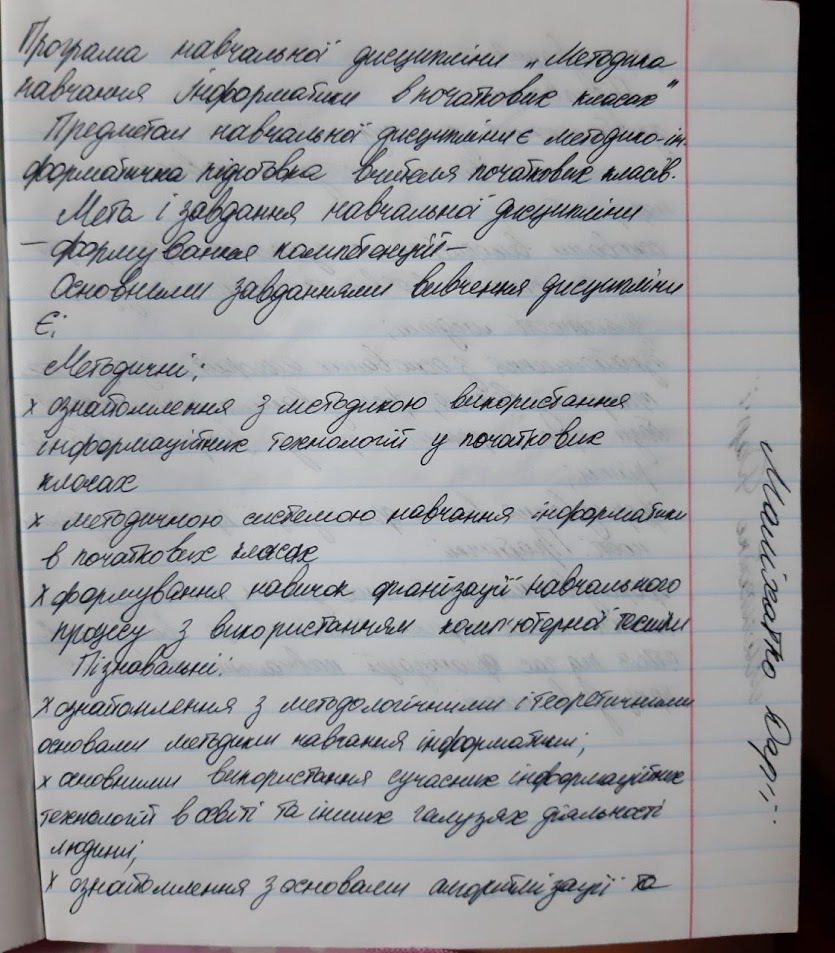 Програма навчальної дисципліни „Методика
навчання інформатики в початкових класах"
Предметом навчальної дисципліни є методико-ін-
форматична підготовка вчителя початкових класів.
Мета і завдання навчальної дисципліни
– формування компетенцій –
Основними завданнями вивчення дисципліни
є:
Методичні:
х ознайомлення з методикою використання
інформаційних технологій у початкових
класах
х методичною системою навчання інформатики
в початкових класах
х формування навичок організації навчального
процесу з використанням комп'ютерної техніки
Пізнавальні:
х ознайомлення з методологічними і теоретичними
основами методики навчання інформатики;
х основними використання сучасних інформаційних
технологій в освіті та інших галузях діяльності
людини;
х ознайомлення з основами алгоритмізації та